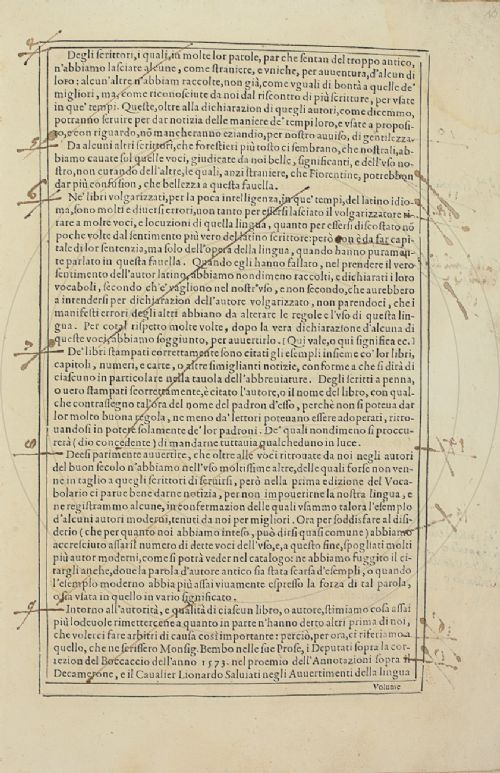 Degli scrittori, i quali, in molte lor parole, par che sentan del troppo antico,
n'abbiamo lasciate alcune, come straniere, e vniche, per auuentura, d'alcun di
loro: alcun'altre n'abbiam raccolte, non già, come vguali di bontà a quelle de'
migliori, ma, come riconosciute da noi dal riscontro di più scritture, per vsate
in que' tempi. Queste, oltre alla dichiarazion di quegli autori, come dicemmo,
potranno seruire per dar notizia delle maniere de' tempi loro, e vsate a proposi-
to, e con riguardo, nõ mancheranno eziandio, per nostro auuiso, di gentilezza.
Da alcuni altri scrittori, che forestieri più tosto ci sembrano, che nostrali, ab-
biamo cauate sol quelle voci, giudicate da noi belle, significanti, e dell'vso no-
stro, non curando dell'altre, le quali, anzi straniere, che Fiorentine, potrebbon
dar più confusion, che bellezza a questa fauella.
Ne' libri volgarizzati, per la poca intelligenza, in que' tempi, del latino idio-
ma, sono molti e diuersi errori, non tanto per essersi lasciato il volgarizzatore ti-
rare a molte voci, e locuzioni di quella lingua, quanto per essersi discostato nõ
poche volte dal sentimento più vero del latino scrittore: però non è da far capi-
tale di lor sentenzia, ma solo dell'opera della lingua, quando hanno puramen-
te parlato in questa fauella. Quando egli hanno fallato, nel prendere il vero
sentimento dell'autor latino, abbiamo nondimeno raccolti, e dichiarati i loro
vocaboli, secondo ch'e' vagliono nel nostr'vso, e non secondo, che aurebbero
a intendersi per dichiarazion dell'autore volgarizzato, non parendoci, che i
manifesti errori degli altri abbiano da alterare le regole e l'vso di questa lin-
gua. Per cotal rispetto molte volte, dopo la vera dichiarazione d'alcuna di
queste voci, abbiamo soggiunto, per auuertirlo. (Qui vale, o qui significa ec.)
De' libri stampati correttamente sono citati gli esempli insieme co' lor libri,
capitoli, numeri, e carte, o altre simiglianti notizie, conforme a che si dirà di
ciascuno in particolare nella tauola dell'abbreuiature. Degli scritti a penna,
o uero stampati scorrettamente, è citato l'autore, o il nome del libro, con qual-
che contrassegno talora del nome del padron d'esso, perchè non si poteua dar
lor molto buona regola, ne meno da' lettori poteuano essere adoperati, ritro-
uandosi in potere solamente de' lor padroni. De' quali nondimeno si proccu-
rerà (dio concedente) di mandarne tuttauia qualcheduno in luce.
Deesi parimente auuertire, che oltre alle voci ritrouate da noi negli autori
del buon secolo n'abbiamo nell'vso moltissime altre, delle quali forse non ven-
ne in taglio a quegli scrittori di seruirsi, però nella prima edizione del Voca-
bolario ci parue bene darne notizia, per non impouerirne la nostra lingua, e
ne registrammo alcune, in confermazion delle quali vsammo talora l'esemplo
d'alcuni autori moderni, tenuti da noi per migliori. Ora per soddisfare al disi-
derio (che per quanto noi abbiamo inteso, può dirsi quasi comune) abbiamo
accresciuto assai il numero di dette voci dell'vso, e, a questo fine, spogliati molti
più autor moderni, come si potrà veder nel catalogo: ne abbiamo fuggito il ci-
targli anche, doue la parola d'autore antico sia stata scarsa d'esempli, o quando
l'esemplo moderno abbia più assai viuamente espresso la forza di tal parola,
o sia vlata in quello in vario significato.
Intorno all'autorità, e qualità di ciascun libro, o autore, stimiamo cosa assai
più lodeuole rimettercene a quanto in parte n'hanno detto altri prima di noi,
che volerci fare arbitri di causa così importante: perciò, per ora, ci riferiamo a
quello, che ne scrissero Monsig. Bembo nelle sue Prose, i Deputati sopra la cor-
rezion del Boccaccio dell'anno 1573. nel proemio dell'Annotazioni sopra il
Decamerone, e il Caualier Lionardo Saluiati negli Auuertimenti della lingua
Volume